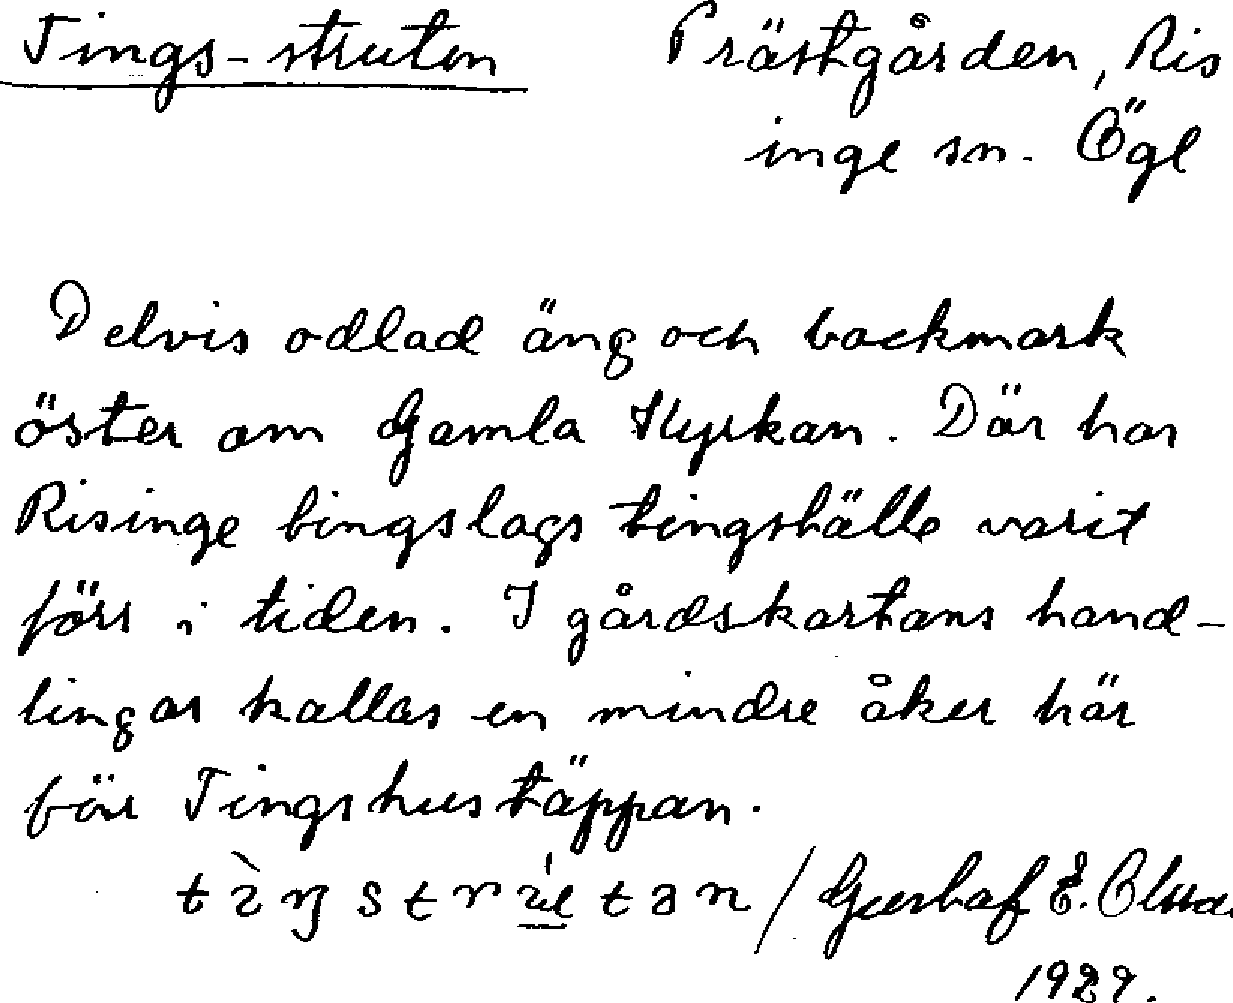 Tings-struten Prästgården, Ris
inge sn. Ögl
Delvis odlad äng och backmark
öster om Gamla Kyrkan. Där har
Risinge tingslags tingshälle varit
förr i tiden. I gårdskartans hand-
lingar kallas en mindre åker här
för Tingshustäppan.
/ Gustaf E. Olsso.
1929.